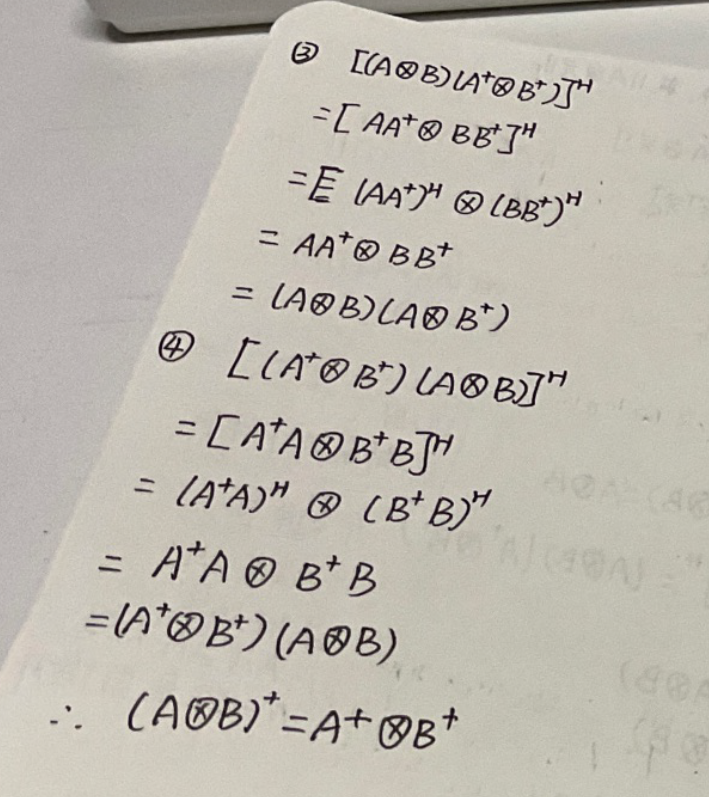 ③ [(A⊗B)(A⁺⊗B⁺)]ᴴ
=[AA⁺⊗BB⁺]ᴴ
=E (AA⁺)ᴴ⊗(BB⁺)ᴴ
=AA⁺⊗BB⁺
=(A⊗B)(A⊗B⁺)
④ [(A⁺⊗B⁺)(A⊗B)]ᴴ
=[A⁺A⊗B⁺B]ᴴ
=(A⁺A)ᴴ⊗(B⁺B)ᴴ
=A⁺A⊗B⁺B
=(A⁺⊗B⁺)(A⊗B)
∴ (A⊗B)⁺=A⁺⊗B⁺